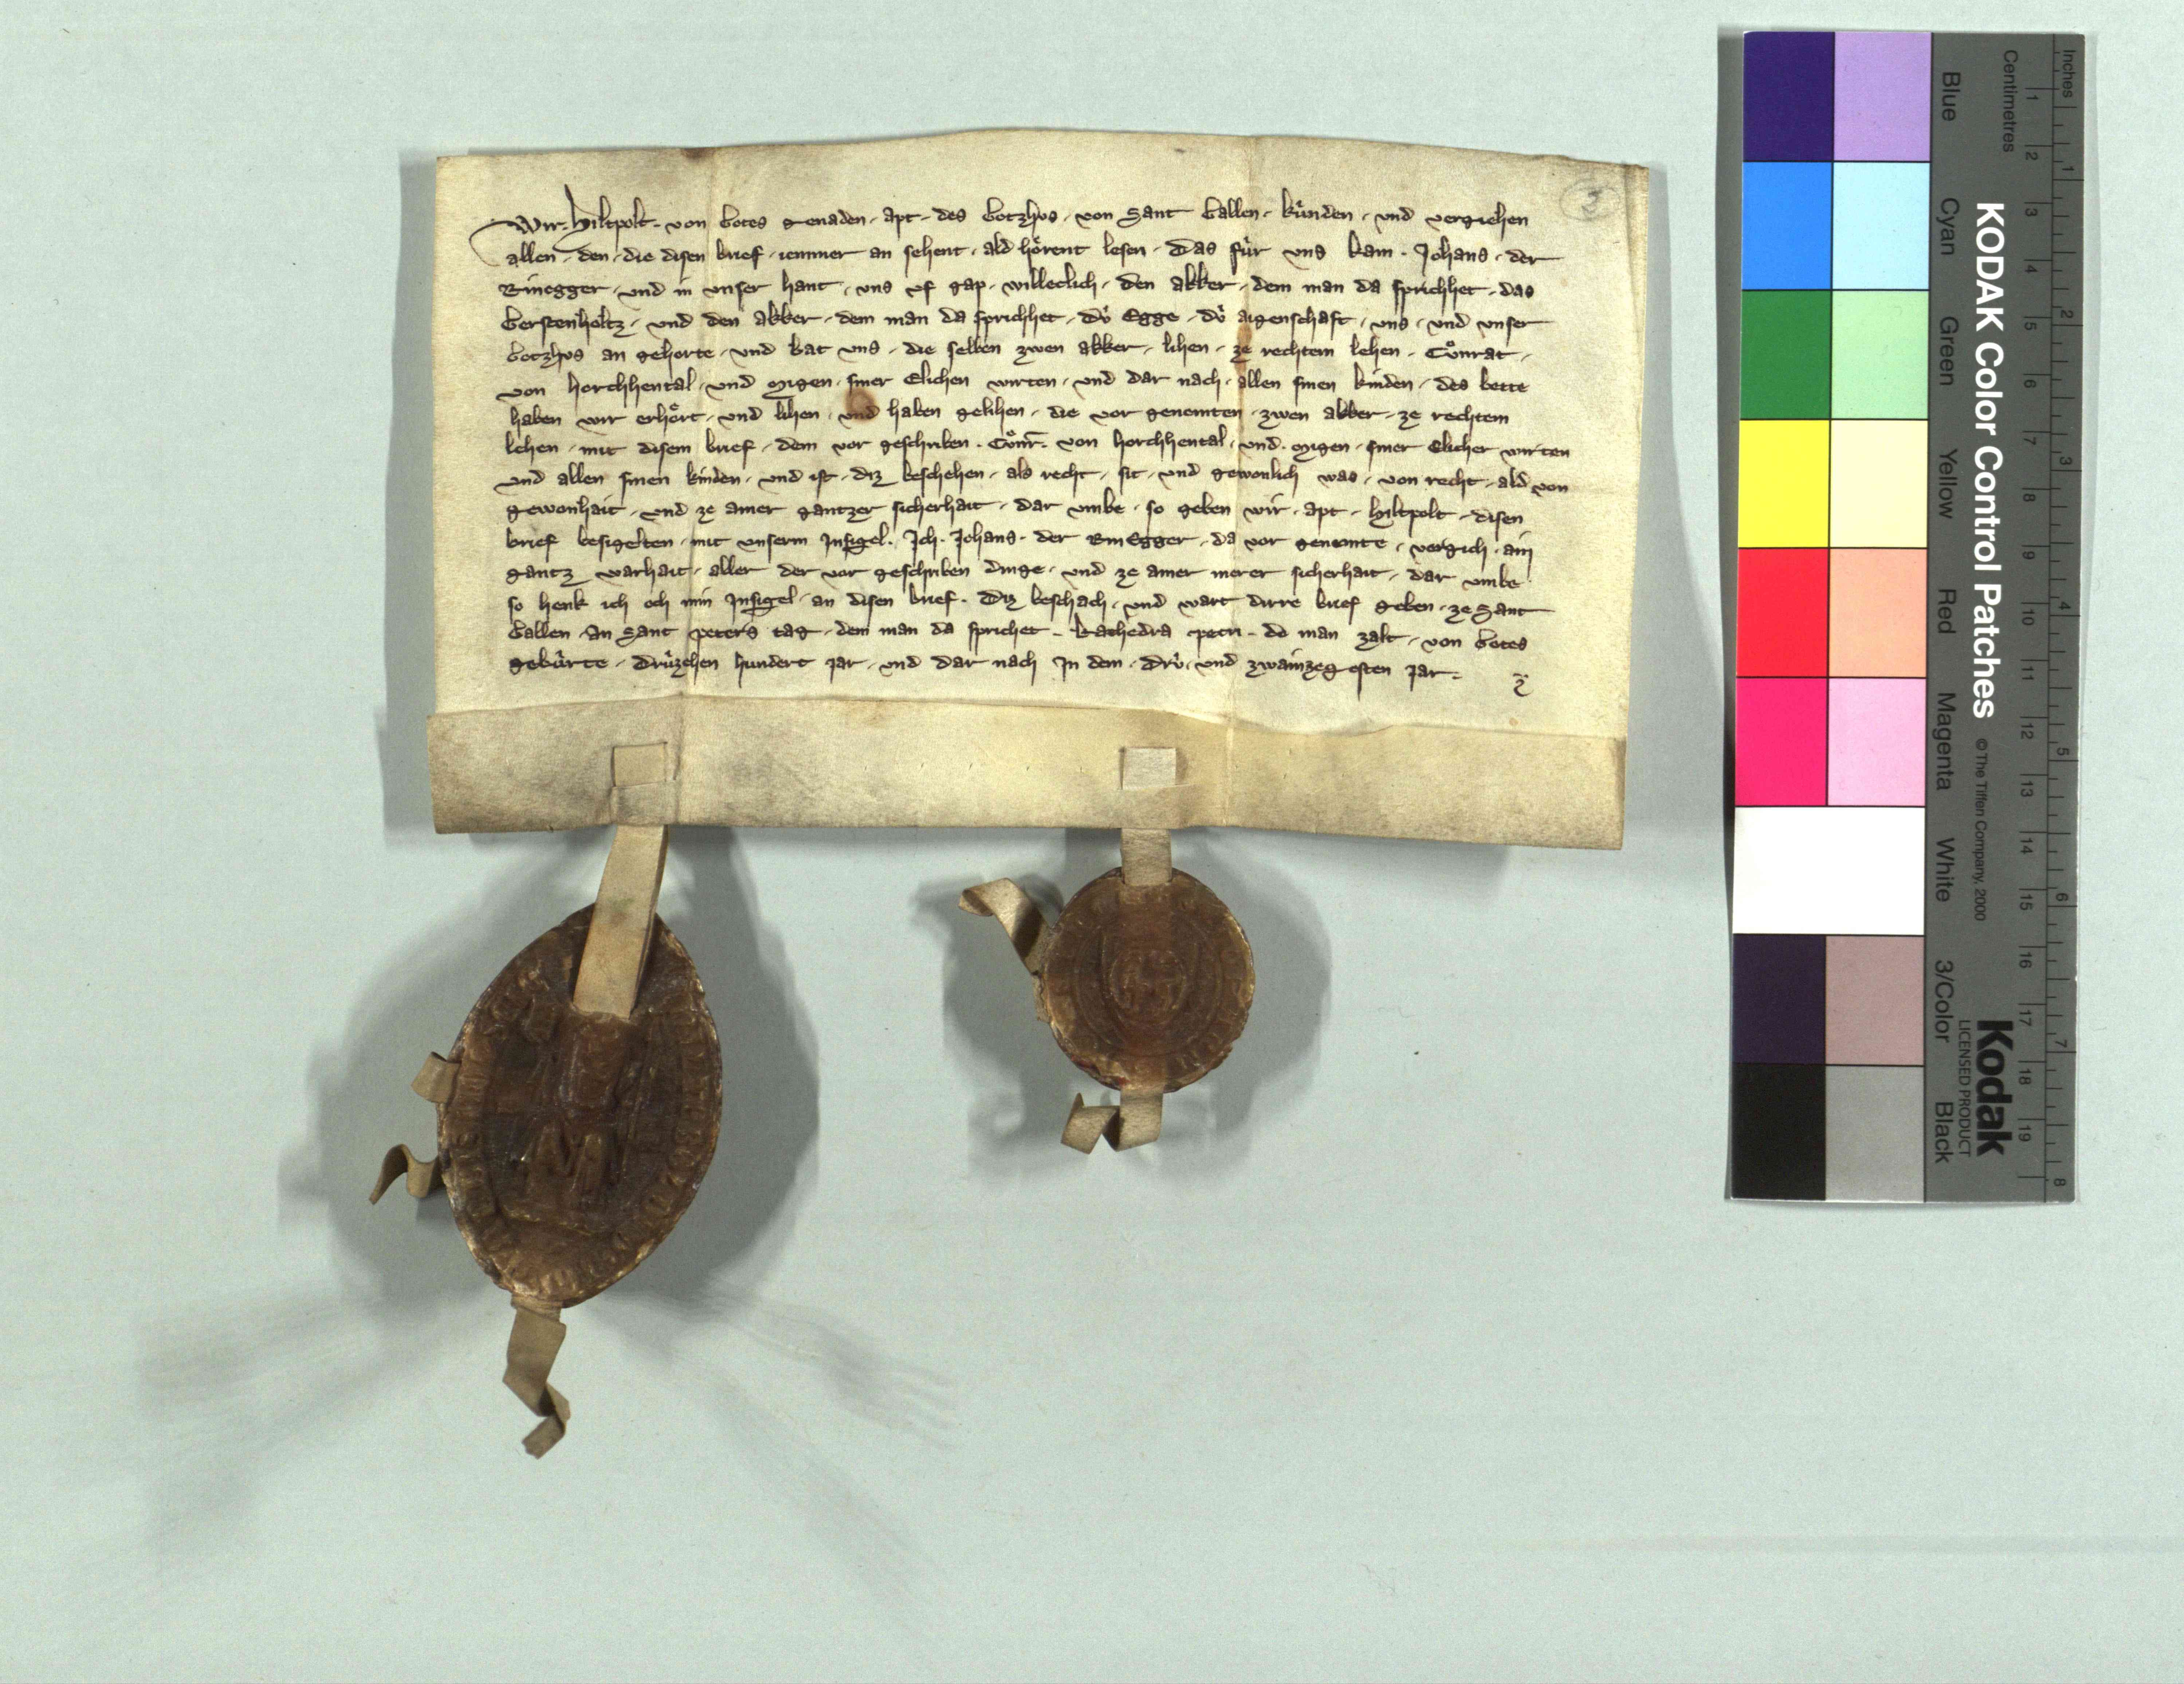 Wir · Hiltpolt · von Gotes genaden · apt · des Gotzhvs · von Sant Gallen · kúnden · vnd veriehen
allen · den · die disen brief · iemmer an sehent · ald hórent lesen · Das fúr vns kam · Johans · der
Rinegger · vnd in vnser hant · vns vf gap · willeclich · den akker · dem man da sprichhet · das
Gerstenholtz · vnd den akker · dem man da sprichhet · dv́ Egge · dv́ aigenschaft · vns · vnd vnser
Gotzhvs an gehorte · vnd bat vns · die selben zwen akker · lihen · ze rechtem lehen · Cůnrat ·
von horchhental · vnd Mı̄gen · siner Elichen wirten · vnd dar nach · allen sinen kinden · des bette
haben wir erhórt · vnd lihen · vnd haben gelihen · die vor genemten · zwen akker · ze rechtem
lehen · mit disem brief · dem vor geschriben · Cůnr̄ · von horchhental · vnd · Migen · siner Elicher wirten
vnd allen sinen kinden · vnd ist · diz beschehen · als recht · sit · vnd gewonlich was · von recht · ald von
gewonhait · vnd ze ainer gantzer sicherhait · dar vmbe · so geben wir · apt · Hiltpolt · disen
brief besigelten · mit vnserm Insigel · Ich · Johans · der RinEgger · da vor genemte · vergich · ain
gantz warhait · aller der vor geschriben dinge · vnd ze ainer merer sicherhait · dar vmbe
so henk ich och min Insigel · an disen brief · Diz beschach · vnd wart dirre brief geben · ze Sant
Gallen · An Sant Peters tag · dem man da sprichet · kathedra Petri · do man zalt · von Gotes
gebúrte · drúzehen hundert jar · vnd dar nach In dem · drv́ · vnd zwainzegosten jar ·
Inches
Centimetres
1 2 3 4 5 6 7 8
1 2 3 4 5 6 7 8 9 10 11 12 13 14 15 16 17 18 19
KODAK Color Control Patches © The Tiffen Company, 2000
Kodak
LICENSED PRODUCT
Blue Cyan Green Yellow Red Magenta White 3/Color Black